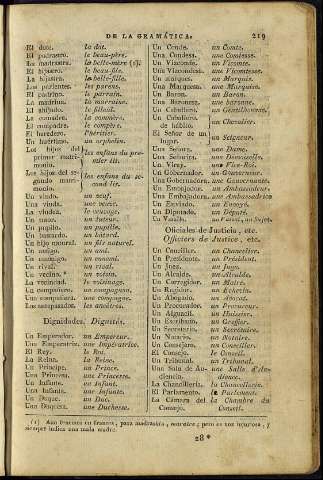 DE LA GRAMÁTICA. 219
El dote. la dot.
El padrastro. le beau-père.
La madrastra. la belle-mère (1).
El hijastro. le beau-fils.
La hijastra. la belle-fille.
Los parientes. les parens.
El padrino. le parrain.
La madrina. la marraine.
El ahijado. le filleul.
La comadre. la commère.
El compadre. le compère.
El heredero. l'héritier.
Un huérfano. un orphelin.
Los hijos del primer matrimonio. les enfans du premier lit.
Los hijos del segundo matrimonio. les enfans du second lit.
Un viudo. un veuf.
Una viuda. une veuve.
La viudez. le veuvage.
Un tutor. un tuteur.
Un pupilo. un pupille.
Un bastardo. un bâtard.
Un hijo natural. un fils naturel.
Un amigo. un ami.
Un enemigo. un ennemi.
Un rival. un rival.
Un vecino. un voisin.
La vecindad. le voisinage.
Un compañero. un compagnon.
Una compañera. une compagne.
Los antepasados. les ancêtres.
Dignidades. Dignités.
Un Emperador. un Empereur.
Una Emperatriz. une Impératrice.
El Rey. le Roi.
La Reina. la Reine.
Un Príncipe. un Prince.
Una Princesa. une Princesse.
Un Infante. un Infant.
Una Infanta. une Infante.
Un Duque. un Duc.
Una Duquesa. une Duchesse.
Un Conde. un Comte.
Una Condesa. une Comtesse.
Un Vizconde. un Vicomte.
Una Vizcondesa. une Vicomtesse.
Un Marques. un Marquis.
Una Marquesa. une Marquise.
Un Baron. un Baron.
Una Baronesa. une baronne.
Un Caballero. un Gentilhomme.
Un Caballero de hábito. un Chevalier.
El Señor de un lugar. un Seigneur.
Una Señora. une Dame.
Una Señorita. une Demoiselle.
Un Virey. un Vice-Roi.
Un Gobernador. un Gouverneur.
Una Gobernadora. une Gouvernante.
Un Embajador. un Ambassadeur.
Una Embajadora. une Ambassadrice.
Un Enviado. un Envoyé.
Un Diputado. un Député.
Un Vasallo. un Vassal, un Sujet.
Oficiales de Justicia, etc.
Officiers de Justice, etc.
Un Canciller. un Chancelier.
Un Presidente. un Président.
Un Juez. un Juge.
Un Alcalde. un Alcalde.
Un Corregidor. un Maire.
Un Regidor. un Échevin.
Un Abogado. un Avocat.
Un Procurador. un Procureur.
Un Alguacil. un Huissier.
Un Escribano. un Greffier.
Un Secretario. un Secrétaire.
Un Notario. un Notaire.
Un Consejero. un Conseiller.
El Consejo. le Conseil.
Un Tribunal. un Tribunal.
Una Sala de Audiencia. une Salle d'Audience.
La Chancillería. la Chancellerie.
El Parlamento. le Parlement.
La Cámara del Consejo. la Chambre du Conseil.
(1) Aun tenemos en frances, para madrastra, marâtre; pero es voz injuriosa, y
siempre indica una mala madre.
28*